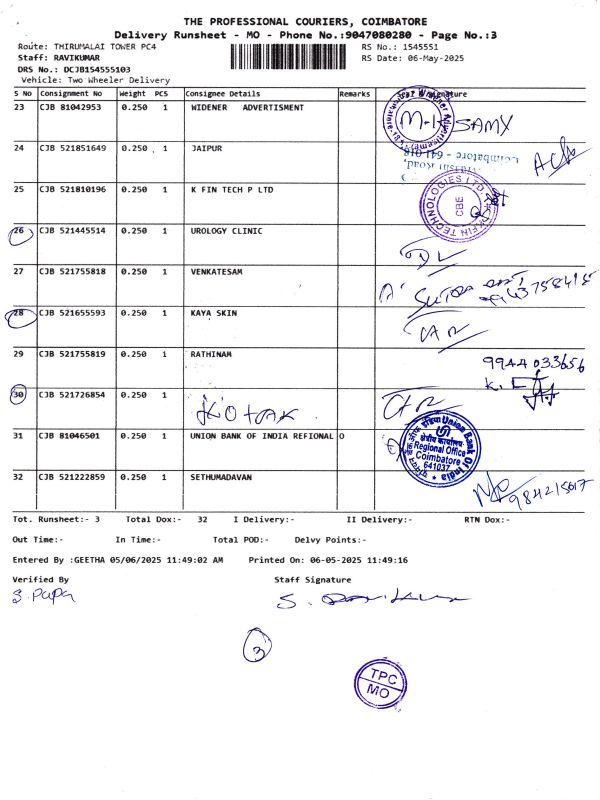 THE PROFESSIONAL COURIERS, COIMBATORE
Delivery Runsheet - MO - Phone No.:9047080280 - Page No.:3
Route: THIRUMALAI TOWER PC4
RS No.: 1545551
Staff: RAVIKUMAR
RS Date: 06-May-2025
DRS No.: DCJB154555103
Vehicle: Two Wheeler Delivery
S No Consignment No Weight PCS Consignee Details Remarks Signature
23 CJB 81042953 0.250 1 WIDENER ADVERTISMENT
SAMY
24 CJB 521851649 0.250 1 JAIPUR
Coimbatore - 641 018
25 CJB 521810196 0.250 1 K FIN TECH P LTD
KFIN TECHNOLOGIES LTD
CBE
26 CJB 521445514 0.250 1 UROLOGY CLINIC
27 CJB 521755818 0.250 1 VENKATESAM
28 CJB 521655593 0.250 1 KAYA SKIN
29 CJB 521755819 0.250 1 RATHINAM
9944033656
30 CJB 521726854 0.250 1 KOTAK
31 CJB 81046501 0.250 1 UNION BANK OF INDIA REFIONAL O
Union Bank Of India
क्षेत्रीय कार्यालय
Regional Office
Coimbatore
641037
32 CJB 521222859 0.250 1 SETHUMADAVAN
Tot. Runsheet:- 3 Total Dox:- 32 I Delivery:- II Delivery:- RTN Dox:-
Out Time:- In Time:- Total POD:- Delvy Points:-
Entered By :GEETHA 05/06/2025 11:49:02 AM Printed On: 06-05-2025 11:49:16
Verified By Staff Signature
S. Papa
3
TPC
MO